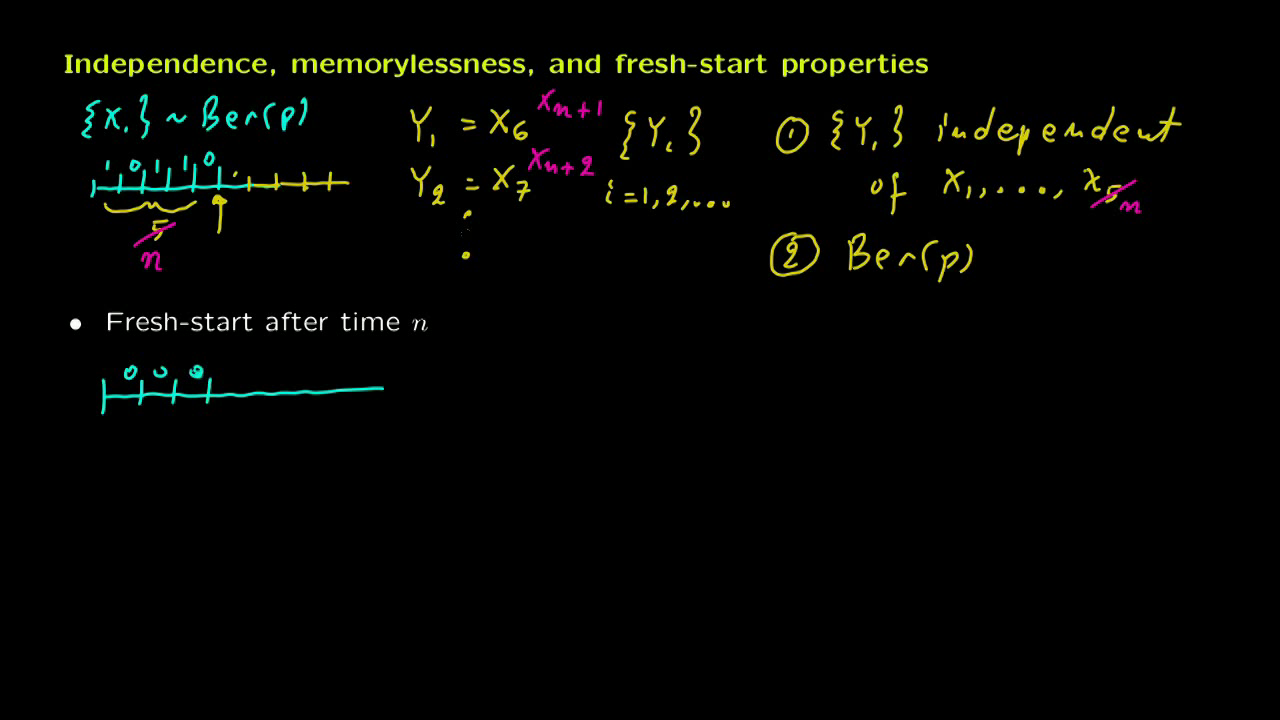 Independence, memorylessness, and fresh-start properties
{X_i} ~ Ber(p)
1 0 1 1 0
5
n
Y_1 = X_6 X_{n+1}
Y_2 = X_7 X_{n+2}
{Y_i}
i = 1, 2, ...
① {Y_i} independent
of X_1, ..., X_5 n
② Ber(p)
• Fresh-start after time n
0 0 0